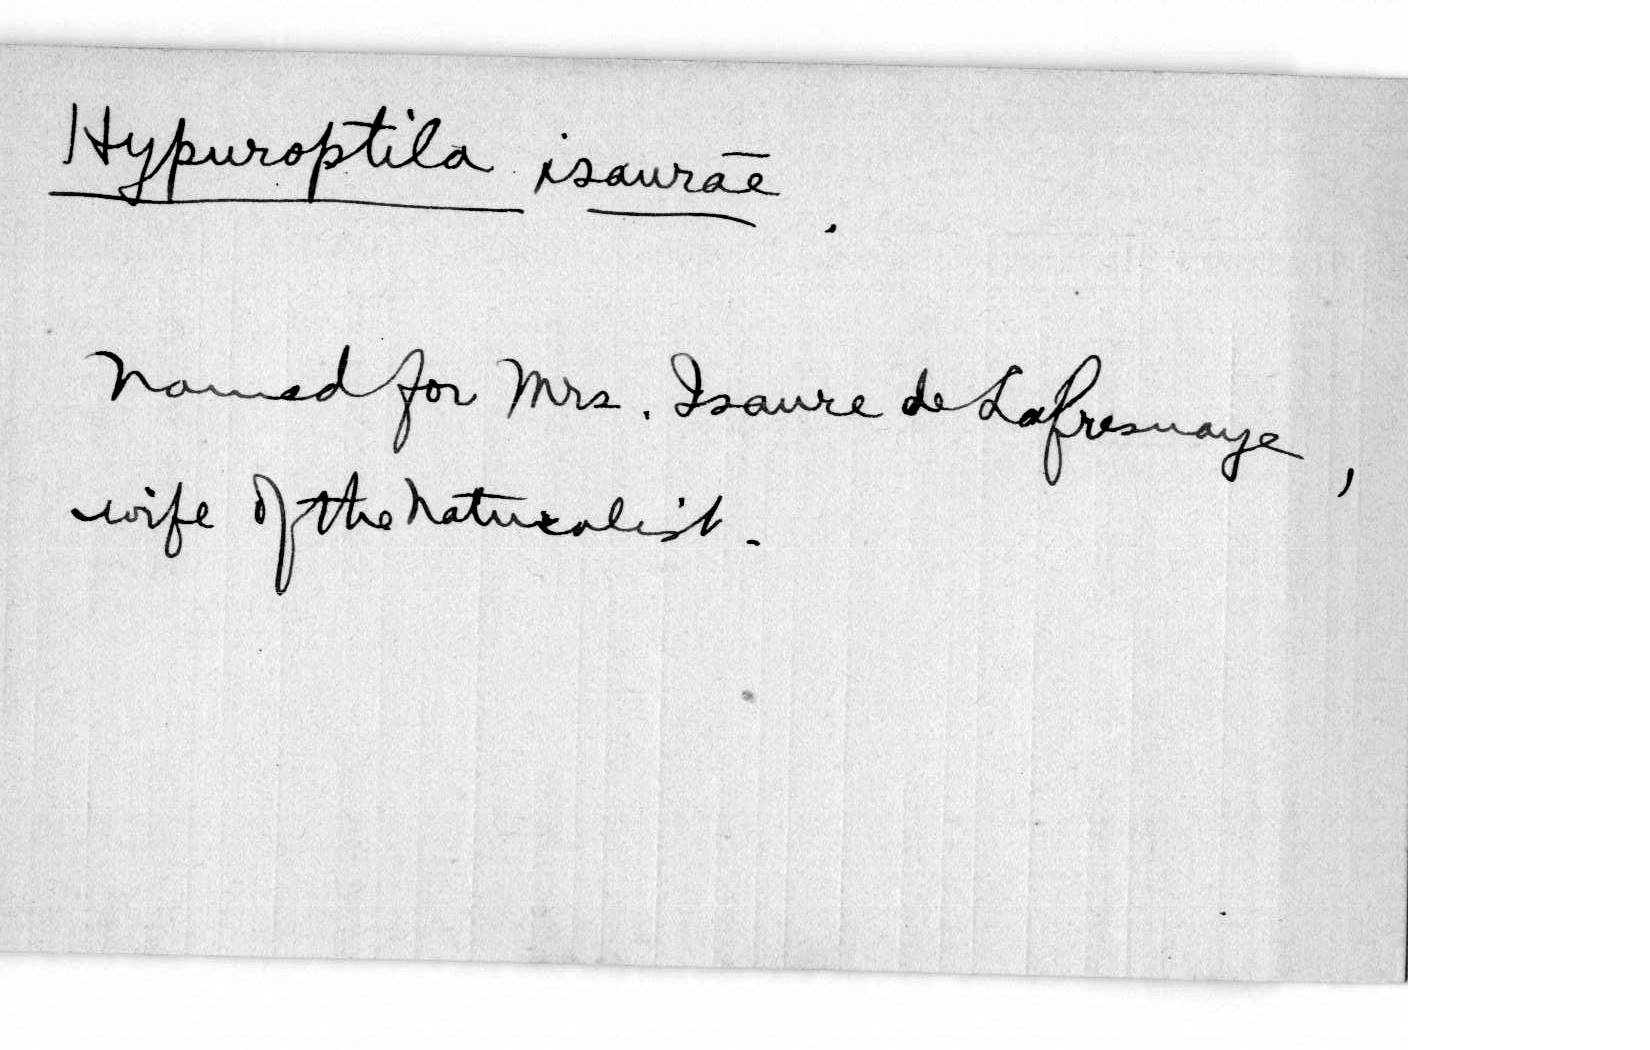 Hypuroptila isaurāe.
Named for Mrs. Isaure de Lafresnaye,
wife of the naturalist.